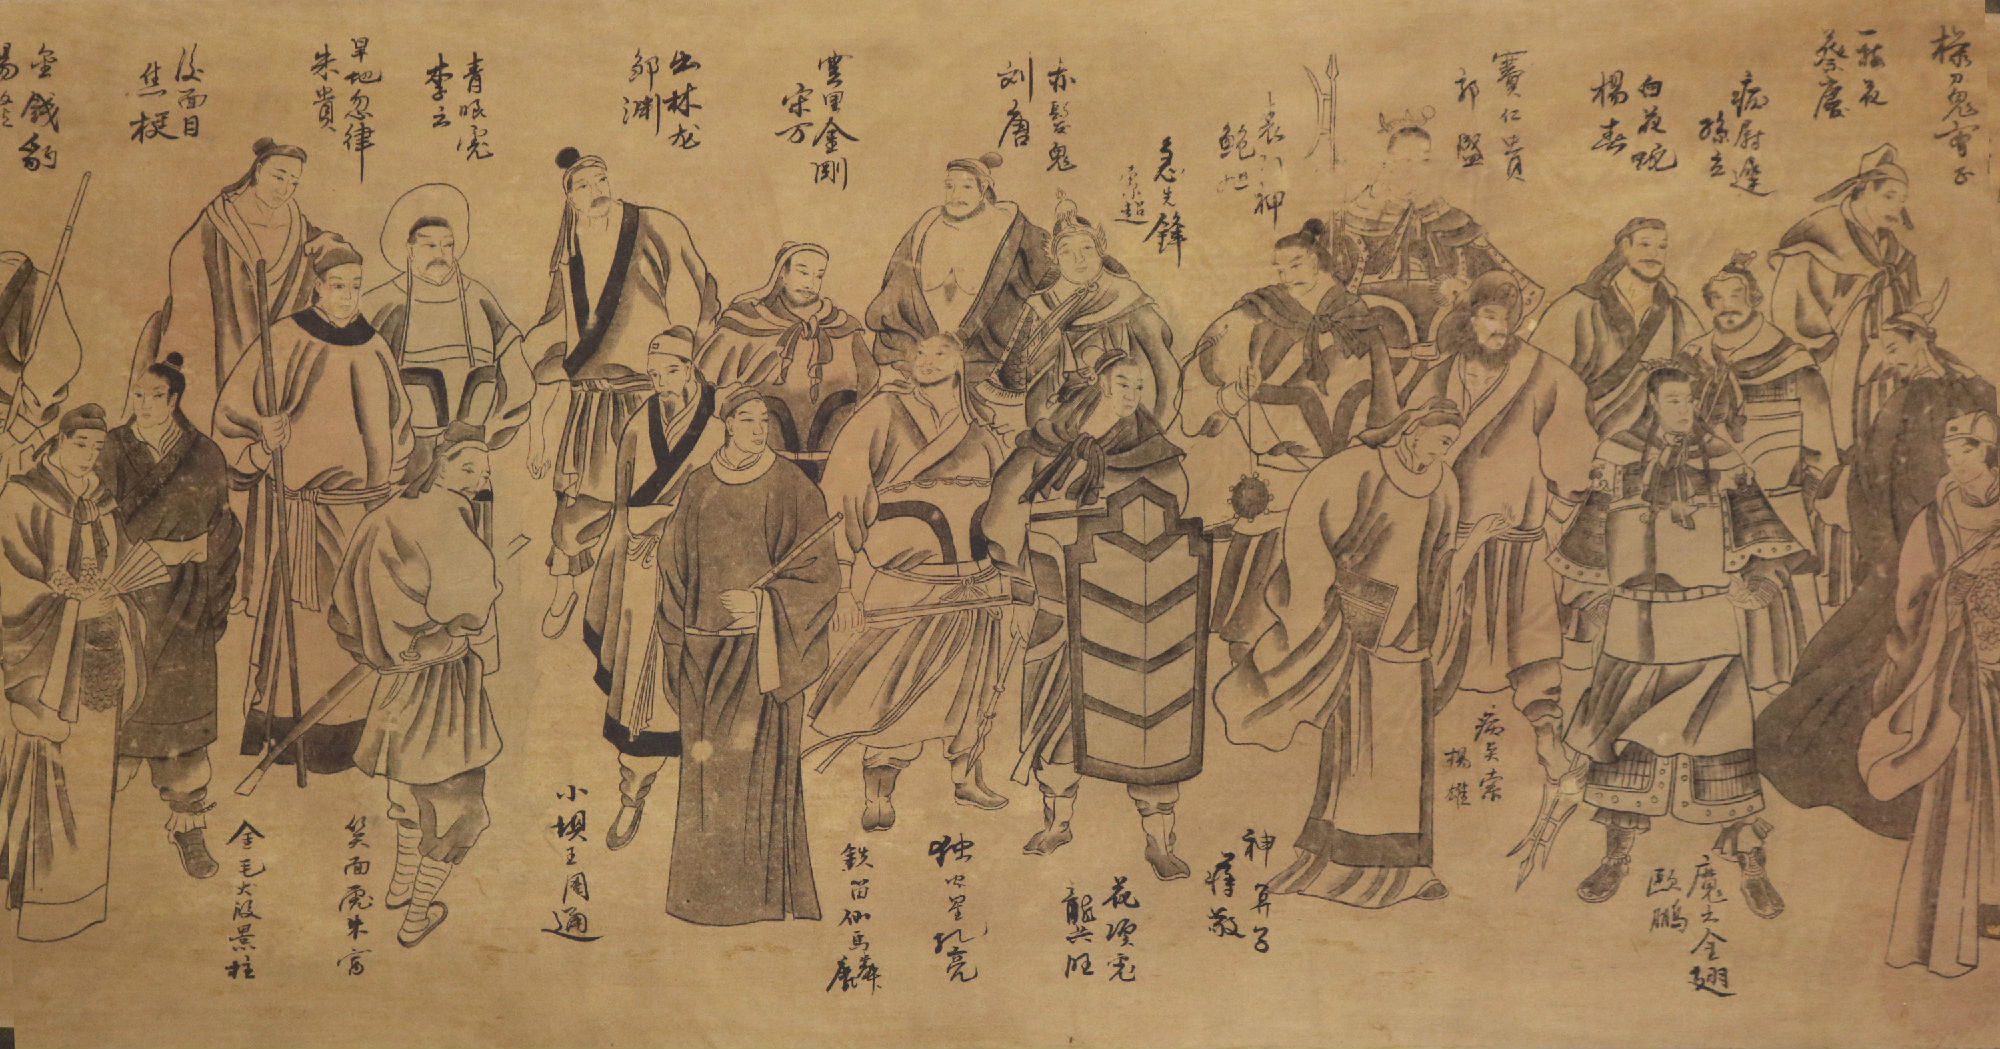 操刀鬼曹正
一枝花
蔡慶
病尉遲
孫立
白花蛇
楊春
賽仁貴
郭盛
喪门神
鮑旭
急先鋒
索超
赤髮鬼
刘唐
雲里金剛
宋万
出林龙
邹渊
青眼虎
李立
旱地忽律
朱貴
没面目
焦梃
金錢豹
楊
魔云金翅
歐鵬
病关索
楊雄
神算子
蒋敬
花项虎
龍共旺
独火星孔亮
鉄笛仙馬麟
小坝王周通
笑面虎朱富
金毛犬段景柱